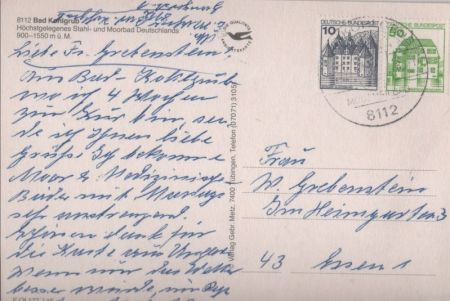 8112 Bad Kohlgrub
Höchstgelegenes Stahl- und Moorbad Deutschlands
900–1550 m ü. M.
Liebe Fr. Grebenstein!
Aus Bad Kohlgrub
wo ich 4 Wochen
zur Kur bin, sen-
de ich Ihnen liebe
Grüße. Ich bekomme
Moor u. Medizinische
Bäder mit Massage
sehr anstrengend.
Schönen Dank für
die Karte aus Ungarn
wenn nur das Wetter
besser würde, nur Regen
Verlag Gebr. Metz, 7400 Tübingen, Telefon (07071) 3105
10
DEUTSCHE BUNDESPOST
50
DEUTSCHE BUNDESPOST
8112
Frau
W. Grebenstein
Im Heimgarten 3
43 Essen 1